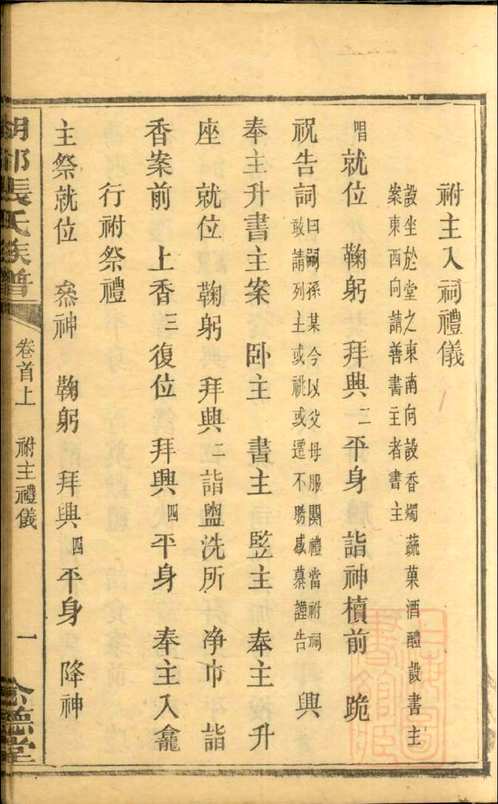 祔主入祠禮儀
設坐於堂之東南向設香燭蔬菓酒醴設書主
案東西向請善書主者書主
唱就位 鞠躬 拜興二平身 詣神櫝前 跪
祝告詞曰嗣孫某今以父母服闋禮當祔祠
敢請列主或祧或遷不勝感慕謹告 興
奉主升書主案 卧主 書主 監主 奉主升
座 就位 鞠躬 拜興二 詣盥洗所 净巾 詣
香案前 上香三 復位 拜興四平身 奉主入龕
行祔祭禮
主祭就位 叅神 鞠躬 拜興四平身 降神
張氏族譜 卷首上 祔主禮儀 一 德堂